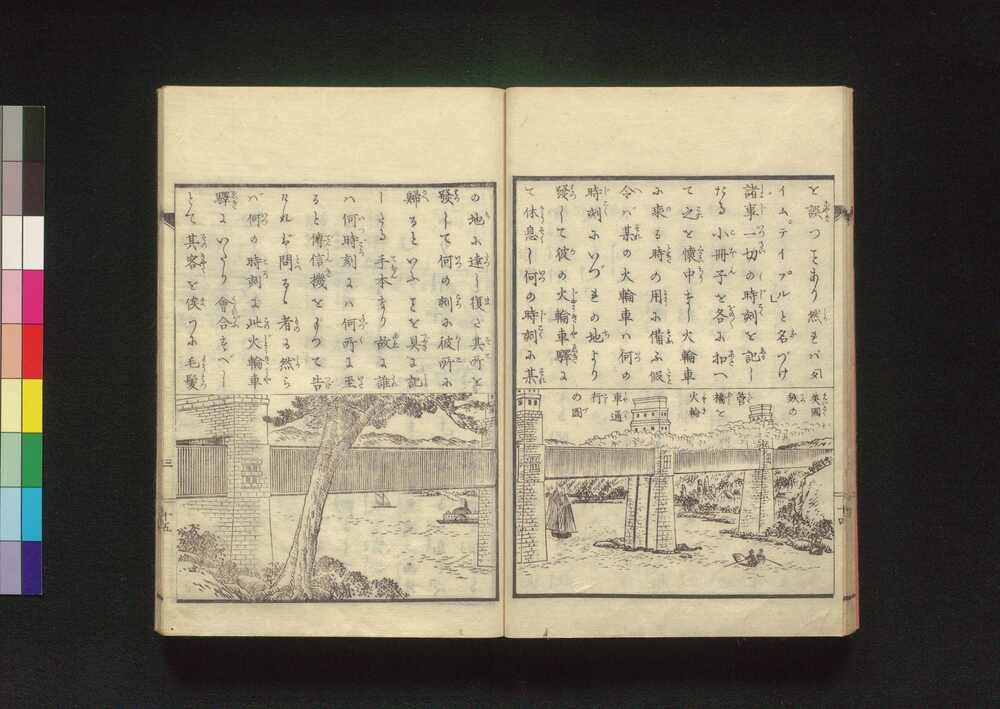 を誤つことあり然もバタ
イムテイブルと名づけ
諸車一切の時刻を記し
たる小冊子を各に扣へ
て之を懐中なし火輪車
に乗る時の用に備ふ假
令バ某の火輪車ハ何の
時刻にいづれの地より
發して彼の火輪車驛に
て休息し何の時刻に某
英國
鉄の
管
橋を
火輪
車通
行
の圖
の地に達し復た其所を
發して何の刻に彼所に
歸るといふことを具に記
したる手本なり故に誰
ハ何時刻にハ何所に至
ると傳信機をもつて告
られなバ問るゝ者も然ら
バ何の時刻に此火輪車
驛にいたり會合すべし
とて其客を俟つに毛髪
三
十五